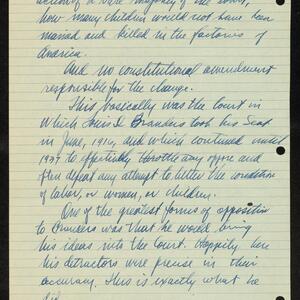 action of a bare majority of the Court,
how many children would not have been
maimed and killed in the factories of
America.
And no constitutional amendment
responsible for the change.
This basically was the Court in
which Louis D Brandeis took his Seat
in June, 1916, and which continued until
1937 to effectively throttle any and
often defeat any attempt to better the condition
of labor, or women, or children.
One of the greatest forms of opposition
to Brandeis was that he would bring
his ideas into the Court. Happily here
his detractors were precise in their
accuracy. This is exactly what he
did.